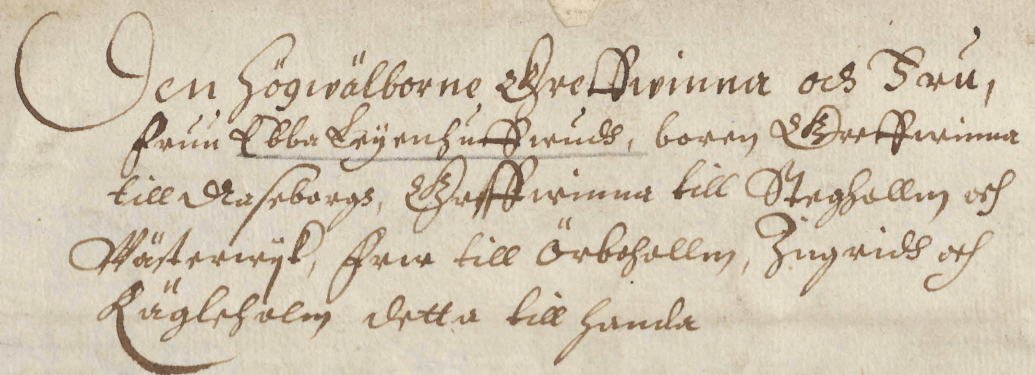 Den Högwälborne Greffwinna och Fru,
Fruu Ebba Leyenhuffwudh, boren Greffwinna
till Raseborgs, Greffwinna till Steghollm och
Wästerwijk, Frw till Örboholln, Zugridh och
Kägleholm detta till handa